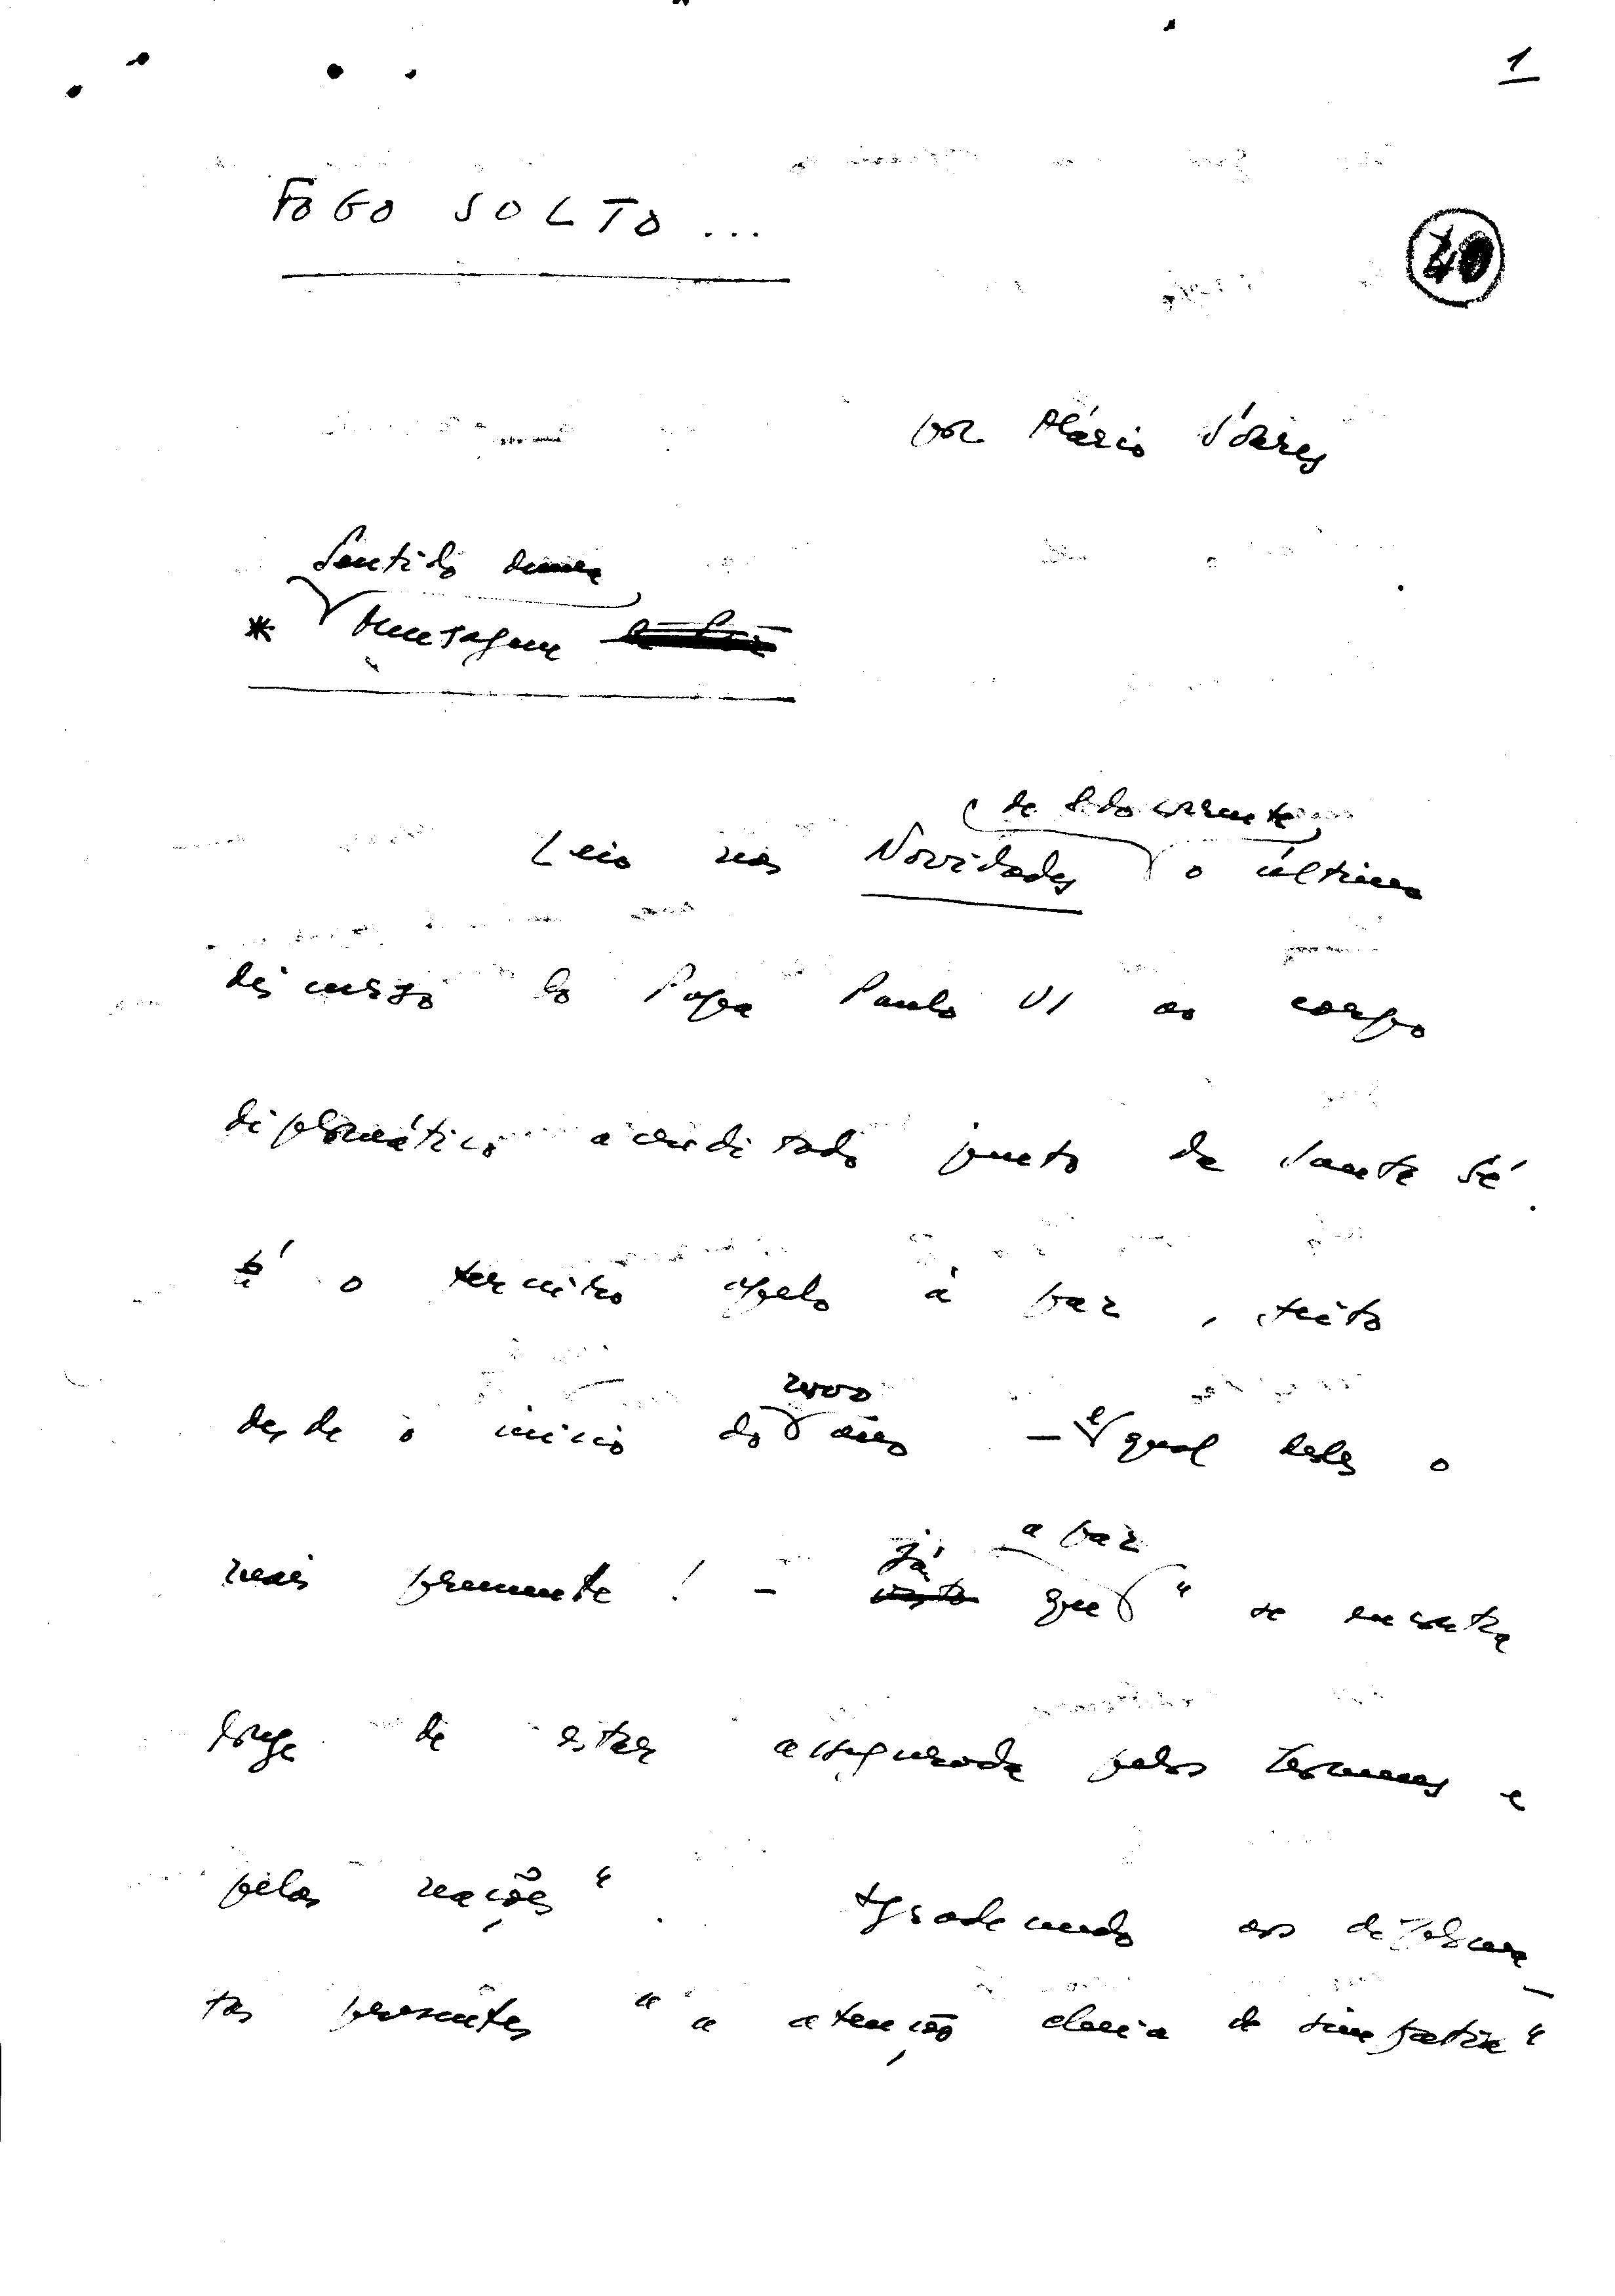 1
FOGO SOLTO...
40
por Mário Soares
Sentido duma
* mensagem
de 8 do corrente
Leio nas Novidades o último
discurso do Papa Paulo VI ao corpo
diplomático acreditado junto da Santa Sé.
É o terceiro apelo à paz, feito
novo
desde o início do ano — e qual deles o
já a paz
mais premente! - visto que " se encontra
longe de estar assegurada pelos homens e
pelas nações". Agradecendo aos diploma-
tas presentes "a atenção cheia de simpatia"